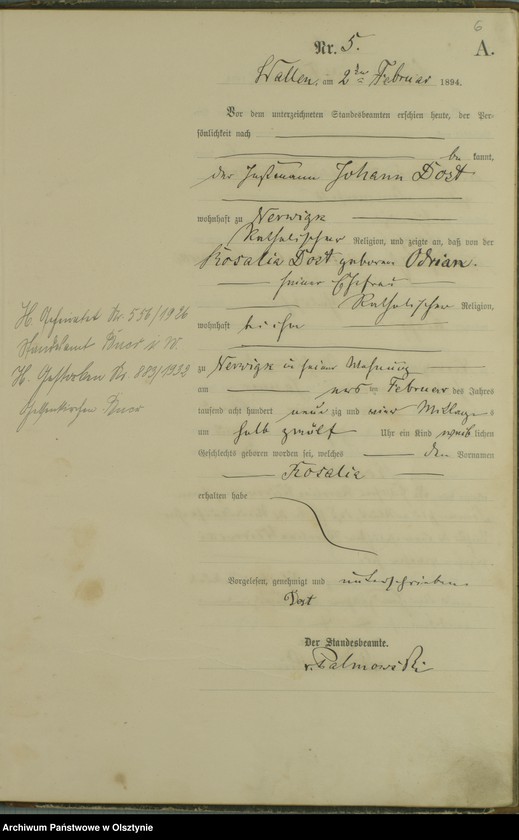 6
Nr. 5.
A.
Wallen, am 2ten Februar 1894.
Vor dem unterzeichneten Standesbeamten erschien heute, der Per-
sönlichkeit nach
be kannt,
der Instmann Johann Dost
wohnhaft zu Nerwigk
Katholischer Religion, und zeigte an, daß von der
Rosalia Dost geboren Odrian.
seiner Ehefrau
Katholischer Religion,
wohnhaft bei ihm
zu Nerwigk in seiner Wohnung
am ersten Februar des Jahres
tausend acht hundert neun zig und vier Mittags
um halb zwölf Uhr ein Kind weib lichen
Geschlechts geboren worden sei, welches den Vornamen
Rosalia
erhalten habe
Vorgelesen, genehmigt und unterschrieben.
Dost
Der Standesbeamte.
v. Palmowski
H. Geheiratet Nr. 556/1926
Standesamt Buer i. W.
H. Gestorben Nr.
Gelsenkirchen Buer
Archiwum Państwowe w Olsztynie